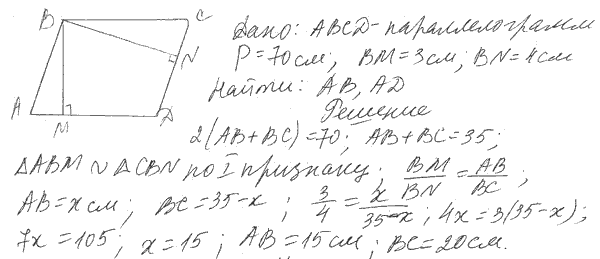 B C Дано: ABCD - параллелограмм
P = 70 см; BM = 3 см; BN = 4 см
N Найти: AB, AD
A M D Решение
2(AB+BC) = 70; AB+BC = 35;
ΔABM ~ ΔCBN по I признаку; BM/BN = AB/BC;
AB = x см; BC = 35-x; 3/4 = x/35-x; 4x = 3(35-x);
7x = 105; x = 15; AB = 15 см; BC = 20 см.